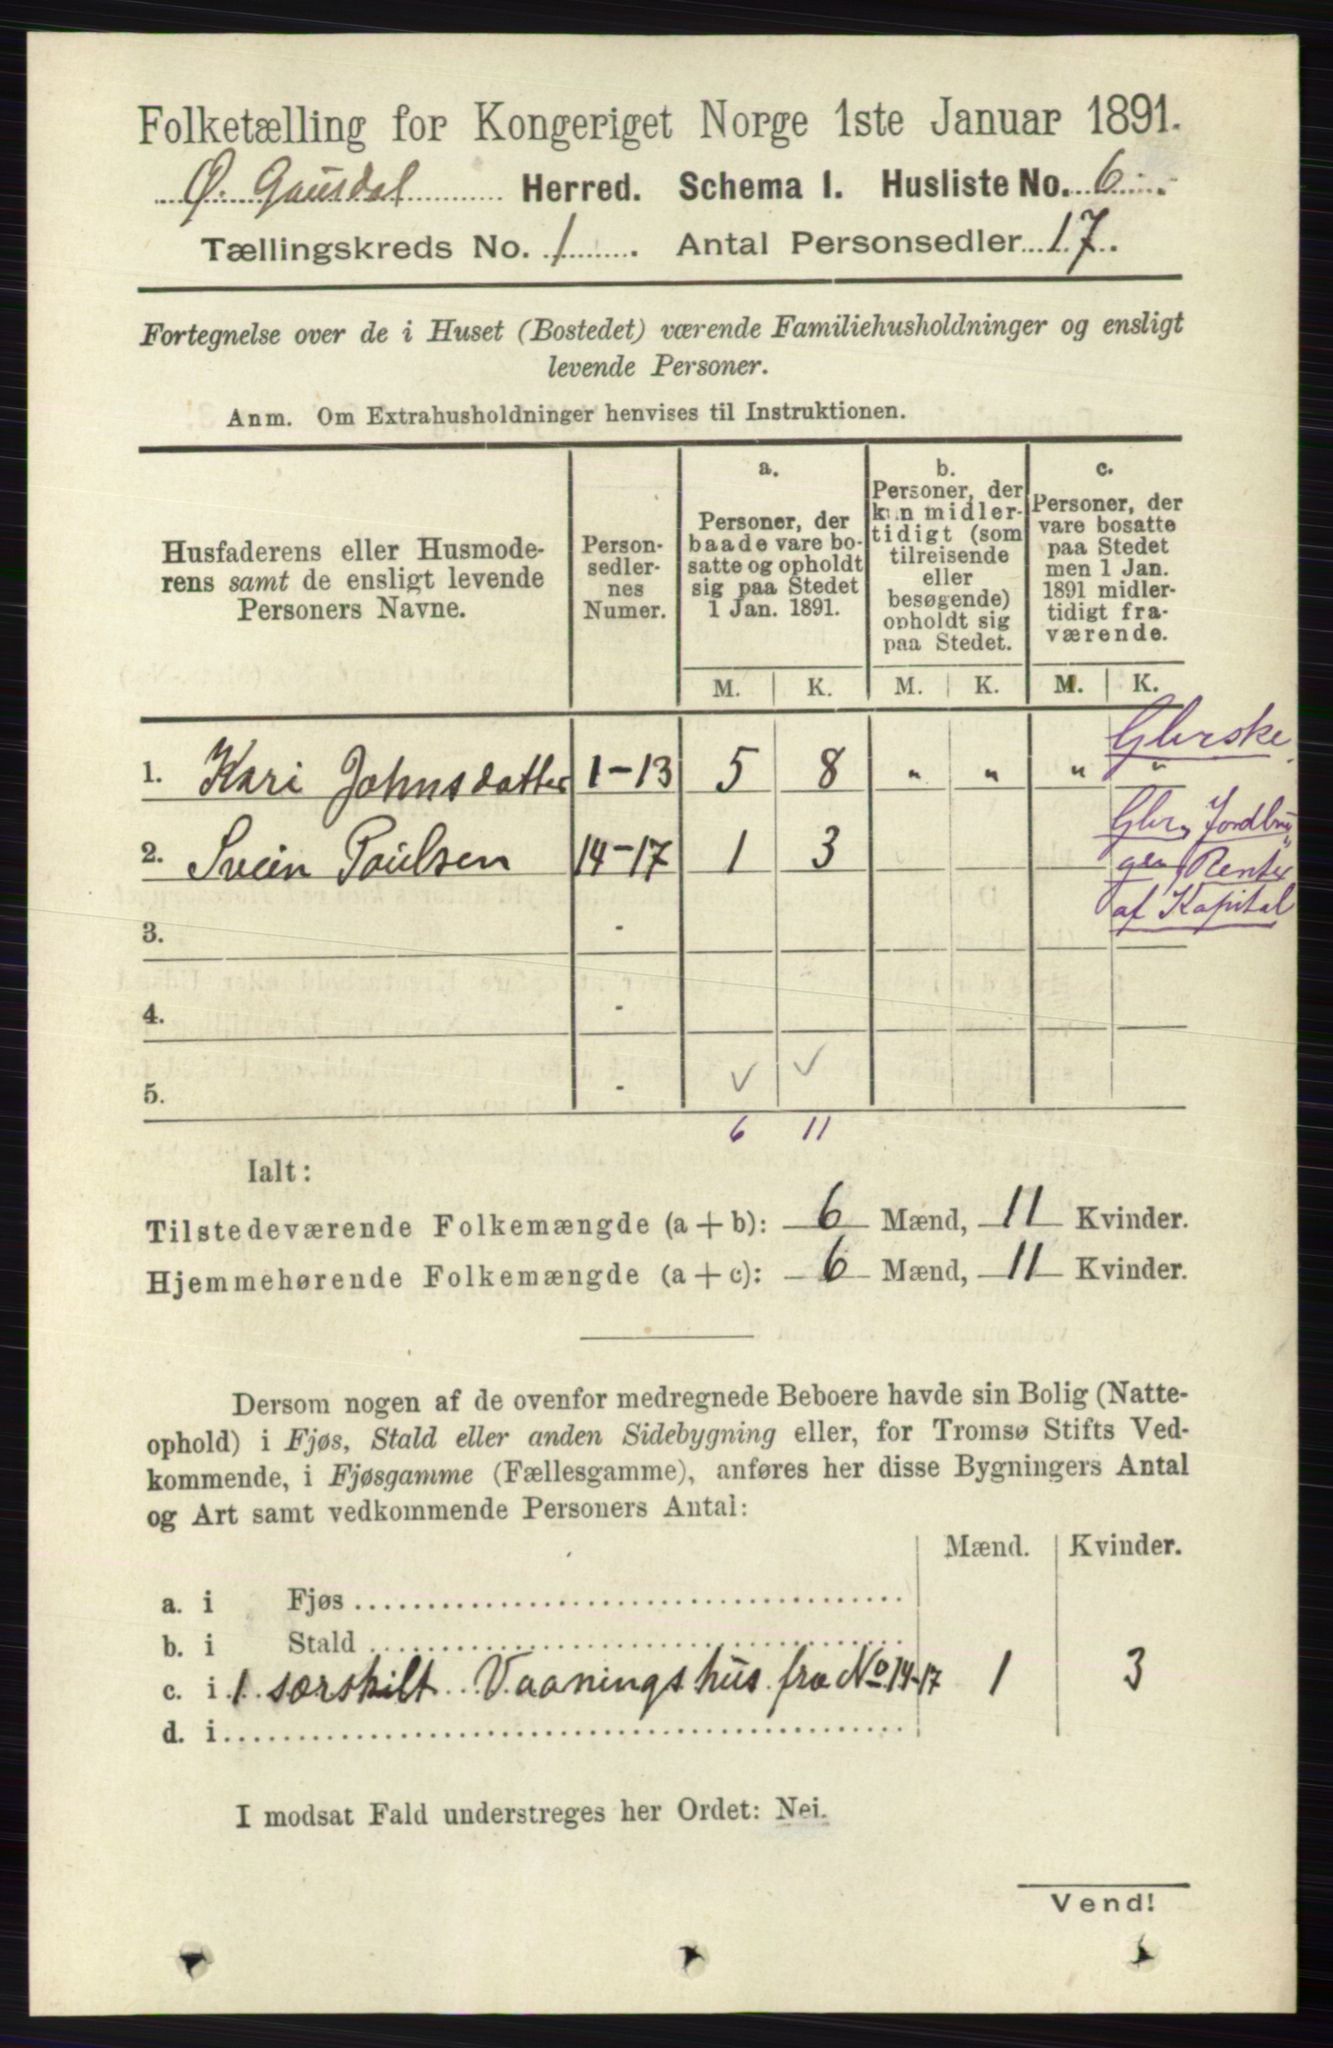 Folketælling for Kongeriget Norge 1ste Januar 1891.
Ø. Gausdal Herred. Schema I. Husliste No. 6.
Tællingskreds No. 1. Antal Personsedler 17.
Fortegnelse over de i Huset (Bostedet) værende Familiehusholdninger og ensligt
levende Personer.
Anm. Om Extrahusholdninger henvises til Instruktionen.
Husfaderens eller Husmode-
rens samt de ensligt levende
Personers Navne.
Person-
sedler-
nes
Numer.
a.
Personer, der
baade vare bo-
satte og opholdt
sig paa Stedet
1 Jan. 1891.
b.
Personer, der
kun midler-
tidigt (som
tilreisende
eller
besøgende)
opholdt sig
paa Stedet.
c.
Personer, der
vare bosatte
paa Stedet
men 1 Jan.
1891 midler-
tidigt fra-
værende.
M. K. M. K. M. K.
1. Kari Johnsdatter 1-13 5 8 " " " "
Gbrske
2. Svein Paulsen 14-17 1 3
Gbr, Jordbru
ger, Renter
af Kapital
3. -
4. -
5. - ✓ ✓
6 11
Ialt:
Tilstedeværende Folkemængde (a + b): 6 Mænd, 11 Kvinder.
Hjemmehørende Folkemængde (a + c): 6 Mænd, 11 Kvinder.
Dersom nogen af de ovenfor medregnede Beboere havde sin Bolig (Natte-
ophold) i Fjøs, Stald eller anden Sidebygning eller, for Tromsø Stifts Ved-
kommende, i Fjøsgamme (Fællesgamme), anføres her disse Bygningers Antal
og Art samt vedkommende Personers Antal:
Mænd. Kvinder.
a. i Fjøs
b. i Stald
c. i 1 særskilt Vaaningshus fra No 14-17 1 3
d. i
I modsat Fald understreges her Ordet: Nei.
Vend!